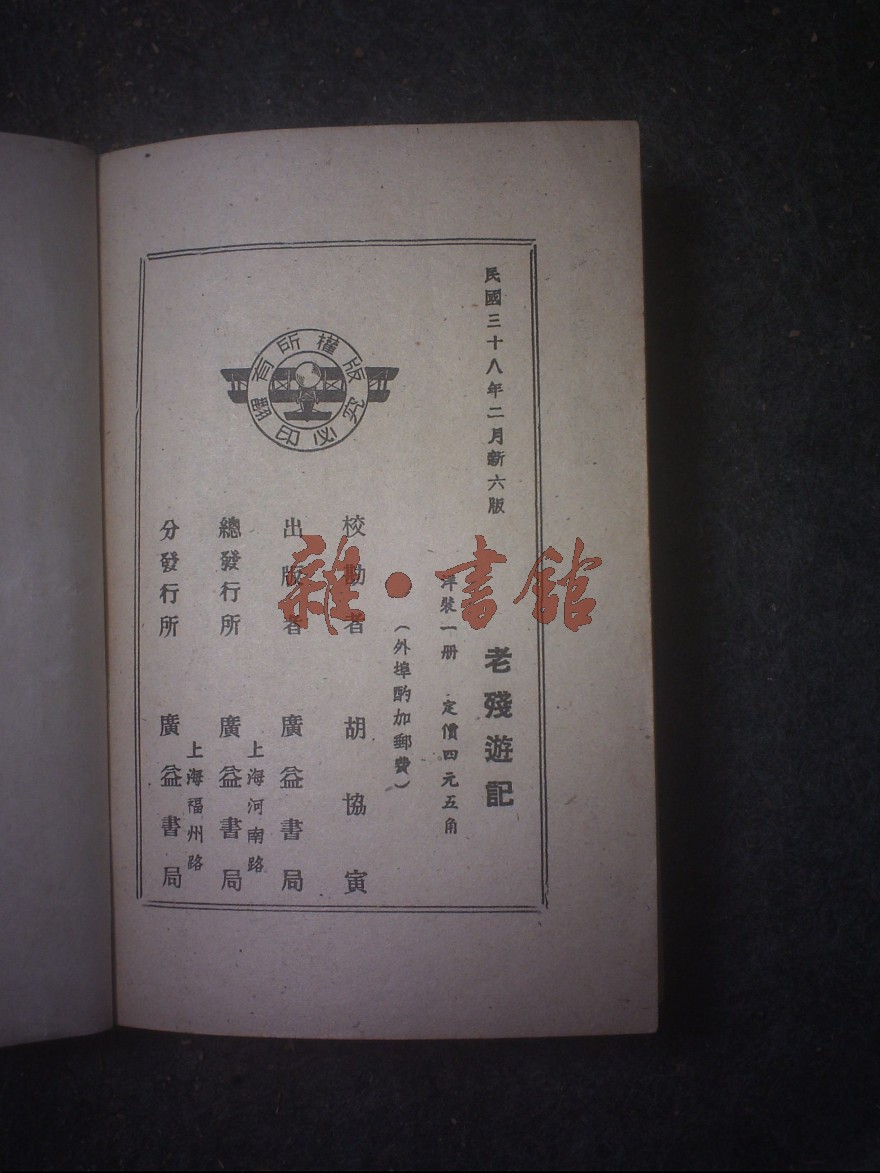 民國三十八年二月新六版
老殘遊記
洋裝一册 定價四元五角
（外埠酌加郵費）
校勘者 胡協寅
出版者 廣益書局
上海河南路
總發行所 廣益書局
上海福州路
分發行所 廣益書局
版權所有
翻印必究
雜·書館